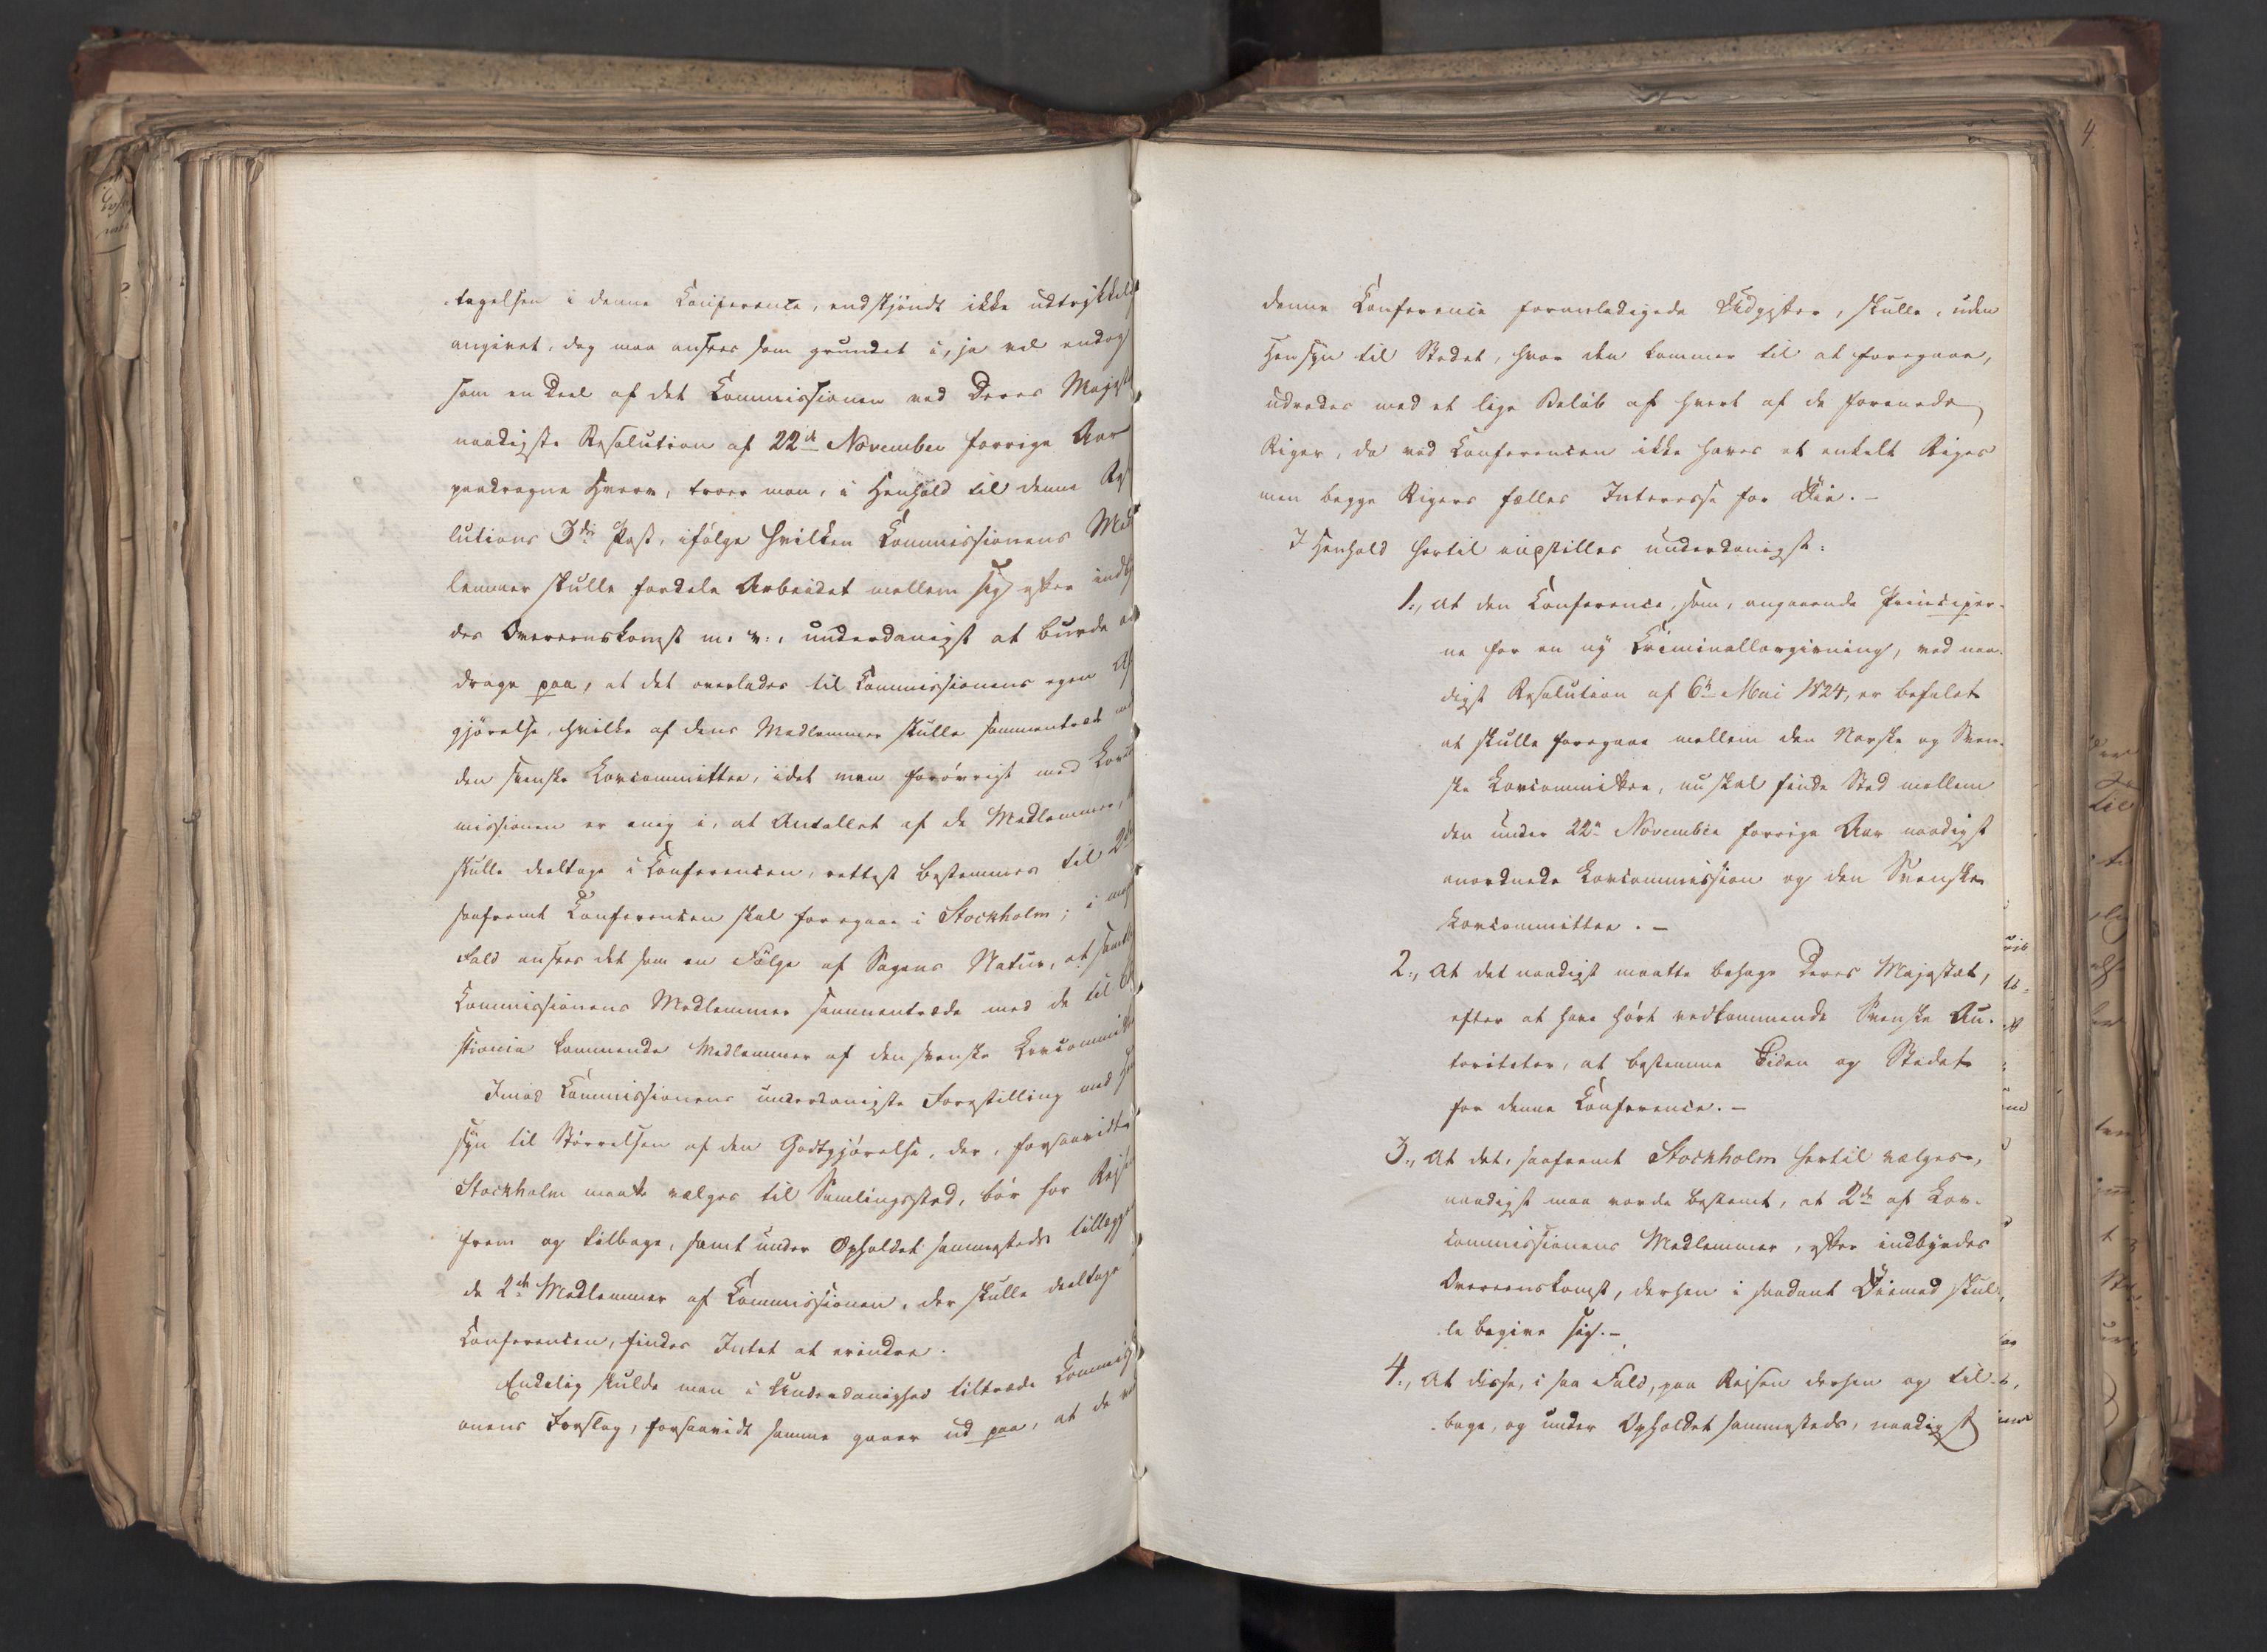 tagelsen i denne Conference, endskjöndt ikke udtrykkeli
angivet, dog maa ansees som grundet i, ja vel endog
som en Deel af det Commissionen ved Deres Majest
naadigste Resolution af 22de November forrige Aar
paadragne Hverv, troer man, i Henhold til denne Re
lutions 3die Post, ifölge hvilken Commissionens Med
lemmer skulle fordele Arbeidet mellem sig efter indby
des Overeenskomst m. v., underdanigst at burde an
drage paa, at det overlades til Commissionens egen Af
gjörelse, hvilke af dens Medlemmer skulle sammentræde
den svenske Lovcommittee, idet man forövrigt med Lovco
missionen er enig i, at Antallet af de Medlemmer,
skulle deeltage i Conferencen, rettest bestemmes til 2de
saafremt Conferencen skal foregaae i Stockholm; i
Fald ansees det som en Fölge af Sagens Natur, at samtl
Commissionens Medlemmer sammentræde med de til
stiania kommende Medlemmer af den svenske Lovcommitt
Imod Commissionens underdanigste Forestilling med Hen
syn til Störrelsen af den Godtgjörelse, der, forsaavidt
Stockholm maatte vælges til Samlingssted, bör for Reise
frem og tilbage, samt under Opholdet sammesteds tillægge
de 2de Medlemmer af Commissionen, der skulle deeltage
Conferencen, findes Intet at erindre.
Endelig skulde man i Underdanighed tiltræde Commissi
onens Forslag, forsaavidt samme gaaer ud paa, at de ved
4.
denne Conference foranledigede Udgifter, skulle, uden
Hensyn til Stedet, hvor den kommer til at foregaae,
udredes med et lige Belöb af hvert af de forenede
Riger, da ved Conferencen ikke haves et enkelt Riges
men begge Rigers fælles Interesse for Øie. –
I Henhold hertil indstilles underdanigst:
1., At den Conference, som, angaaende Principer-
ne for en ny Criminallovgivning, ved naa-
digst Resolution af 6te Mai 1824, er befalet
at skulle foregaae mellem den Norske og Sven-
ske Lovcommittee, nu skal finde Sted mellem
den under 22de November forrige Aar naadigst
anordnede Lovcommission og den Svenske
Lovcommittee. –
2., At det naadigst maatte behage Deres Majestæt,
efter at have hört vedkommende Svenske Au-
toriteter, at bestemme Tiden og Stedet
for denne Conference. –
3., At det, saafremt Stockholm hertil vælges,
naadigst maa vorde bestemt, at 2de af Lov-
commissionens Medlemmer, efter indbyrdes
Overeenskomst, derhen i saadant Øiemed skul-
le begive sig. –
4., At disse, i saa Fald, paa Reisen derhen og til-
bage, og under Opholdet sammesteds, naadigst